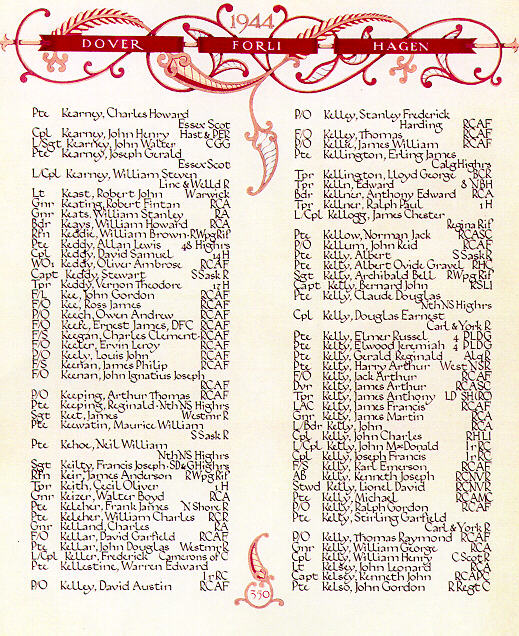 1944
DOVER FORLI HAGEN
Pte Kearney, Charles Howard
Essex Scot
Cpl Kearney, John Henry Hast & PER
L/Sgt Kearney, John Walter CGG
Pte Kearney, Joseph Gerald
Essex Scot
L/Cpl Kearney, William Steven
Linc & Welld R
Lt Keast, Robert John Warwick
Gnr Keating, Robert Fintan RCA
Gnr Keats, William Stanley RA
Bdr Keays, William Howard RCA
Rfn Keddie, William Brown RWpgRif
Pte Keddy, Allan Lewis 48 Highrs
Cpl Keddy, David Samuel 14 H
WO1 Keddy, Oliver Ambrose RCAF
Capt Keddy, Stewart S Sask R
Tpr Keddy, Vernon Theodore 17 H
F/L Kee, John Gordon RCAF
F/O Kee, Ross James RCAF
P/O Keech, Owen Andrew RCAF
F/O Keefe, Ernest James, DFC RCAF
F/S Keegan, Charles Clement RCAF
F/O Keeler, Ervin Leroy RCAF
P/O Keely, Louis John RCAF
F/S Keenan, James Philip RCAF
F/O Keenan, John Ignatius Joseph
RCAF
P/O Keeping, Arthur Thomas RCAF
Pte Keeping, Reginald NthNS Highrs
Sgt Keet, James Westmr R
Pte Keewatin, Maurice William
S Sask R
Pte Kehoe, Neil William
NthNS Highrs
Sgt Keilty, Francis Joseph SD&GHighrs
Rfn Keir, James Anderson RWpg Rif
Tpr Keith, Cecil Oliver 1 H
Gnr Keizer, Walter Boyd RCA
Pte Keleher, Frank James N Shore R
Pte Keleher, William Charles RCR
Gnr Kelland, Charles RA
F/O Kellar, David Garfield RCAF
Pte Kellar, John Douglas Westmr R
L/Cpl Keller, Frederick Camerons of C
Pte Kellestine, Warren Edward
1r RC
P/O Kelley, David Austin RCAF
P/O Kelley, Stanley Frederick
Harding RCAF
F/O Kelley, Thomas RCAF
P/O Kellie, James William RCAF
Pte Kellington, Erling James
Calg Highrs
Tpr Kellington, Lloyd George BCR
Tpr Kellin, Edward 8 NBH
Bdr Kellner, Anthony Edward RCA
Tpr Kellner, Ralph Paul 1 H
L/Cpl Kellogg, James Chester
Regina Rif
Pte Kellow, Norman Jack RCASC
P/O Kellum, John Reid RCAF
Pte Kelly, Albert S Sask R
Pte Kelly, Albert Ovide Gravel RHC
Sgt Kelly, Archibald Bell RWpg Rif
Capt Kelly, Bernard John RSLI
Pte Kelly, Claude Douglas
NthNS Highrs
Cpl Kelly, Douglas Earnest
Carl & York R
Pte Kelly, Elmer Russel 4 PLDG
Pte Kelly, Elwood Jeremiah 4 PLDG
Pte Kelly, Gerald Reginald Alq R
Pte Kelly, Harry Arthur West NSR
F/O Kelly, Jack Arthur RCAF
Dvr Kelly, James Arthur RCASC
Tpr Kelly, James Anthony LD SH(RC)
LAC Kelly, James Francis RCAF
Gnr Kelly, James Martin RCA
L/Bdr Kelly, John RCA
Cpl Kelly, John Charles RHLI
L/Cpl Kelly, John McDonald 1r RC
Cpl Kelly, Joseph Francis 1r RC
F/S Kelly, Karl Emerson RCAF
AB Kelly, Kenneth Joseph RCNVR
Stwd Kelly, Lionel David RCNVR
Pte Kelly, Michael RCAMC
P/O Kelly, Ralph Gordon RCAF
Pte Kelly, Stirling Garfield
Carl & York R
P/O Kelly, Thomas Raymond RCAF
Gnr Kelly, William George RCA
Cpl Kelly, William Henry C Scot R
Lt Kelsey, John Leonard RCA
Capt Kelsey, Kenneth John RCAPC
Pte Kelso, John Gordon R Regt C
350